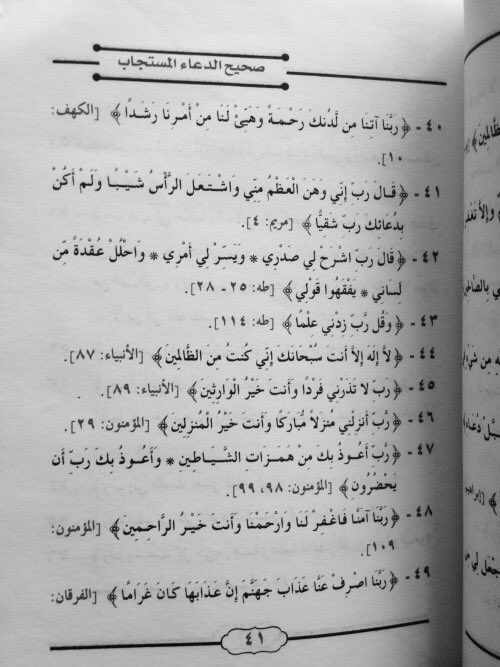 صحيح الدعاء المستجاب
٤٠ - ﴿رَبَّنَا آتِنَا مِن لَّدُنكَ رَحْمَةً وَهَيِّئْ لَنَا مِنْ أَمْرِنَا رَشَدًا﴾ [الكهف:
١٠].
٤١ - ﴿قَالَ رَبِّ إِنِّي وَهَنَ الْعَظْمُ مِنِّي وَاشْتَعَلَ الرَّأْسُ شَيْبًا وَلَمْ أَكُنْ
بِدُعَائِكَ رَبِّ شَقِيًّا﴾ [مريم: ٤].
٤٢ - ﴿قَالَ رَبِّ اشْرَحْ لِي صَدْرِي * وَيَسِّرْ لِي أَمْرِي * وَاحْلُلْ عُقْدَةً مِّن
لِسَانِي * يَفْقَهُوا قَوْلِي﴾ [طه: ٢٥ - ٢٨].
٤٣ - ﴿وَقُل رَّبِّ زِدْنِي عِلْمًا﴾ [طه: ١١٤].
٤٤ - ﴿لاَّ إِلَهَ إِلاَّ أَنتَ سُبْحَانَكَ إِنِّي كُنتُ مِنَ الظَّالِمِينَ﴾ [الأنبياء: ٨٧].
٤٥ - ﴿رَبِّ لا تَذَرْنِي فَرْدًا وَأَنتَ خَيْرُ الْوَارِثِينَ﴾ [الأنبياء: ٨٩].
٤٦ - ﴿رَّبِّ أَنزِلْنِي مُنزَلاً مُّبَارَكًا وَأَنتَ خَيْرُ الْمُنزِلِينَ﴾ [المؤمنون: ٢٩].
٤٧ - ﴿رَّبِّ أَعُوذُ بِكَ مِنْ هَمَزَاتِ الشَّيَاطِينِ * وَأَعُوذُ بِكَ رَبِّ أَن
يَحْضُرُونِ﴾ [المؤمنون: ٩٨، ٩٩].
٤٨ - ﴿رَبَّنَا آمَنَّا فَاغْفِرْ لَنَا وَارْحَمْنَا وَأَنتَ خَيْرُ الرَّاحِمِينَ﴾ [المؤمنون:
١٠٩].
٤٩ - ﴿رَبَّنَا اصْرِفْ عَنَّا عَذَابَ جَهَنَّمَ إِنَّ عَذَابَهَا كَانَ غَرَامًا﴾ [الفرقان:
٤١